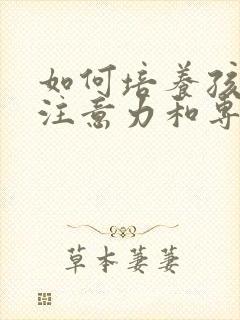 如何培养孩
注意力和专
草本萋萋